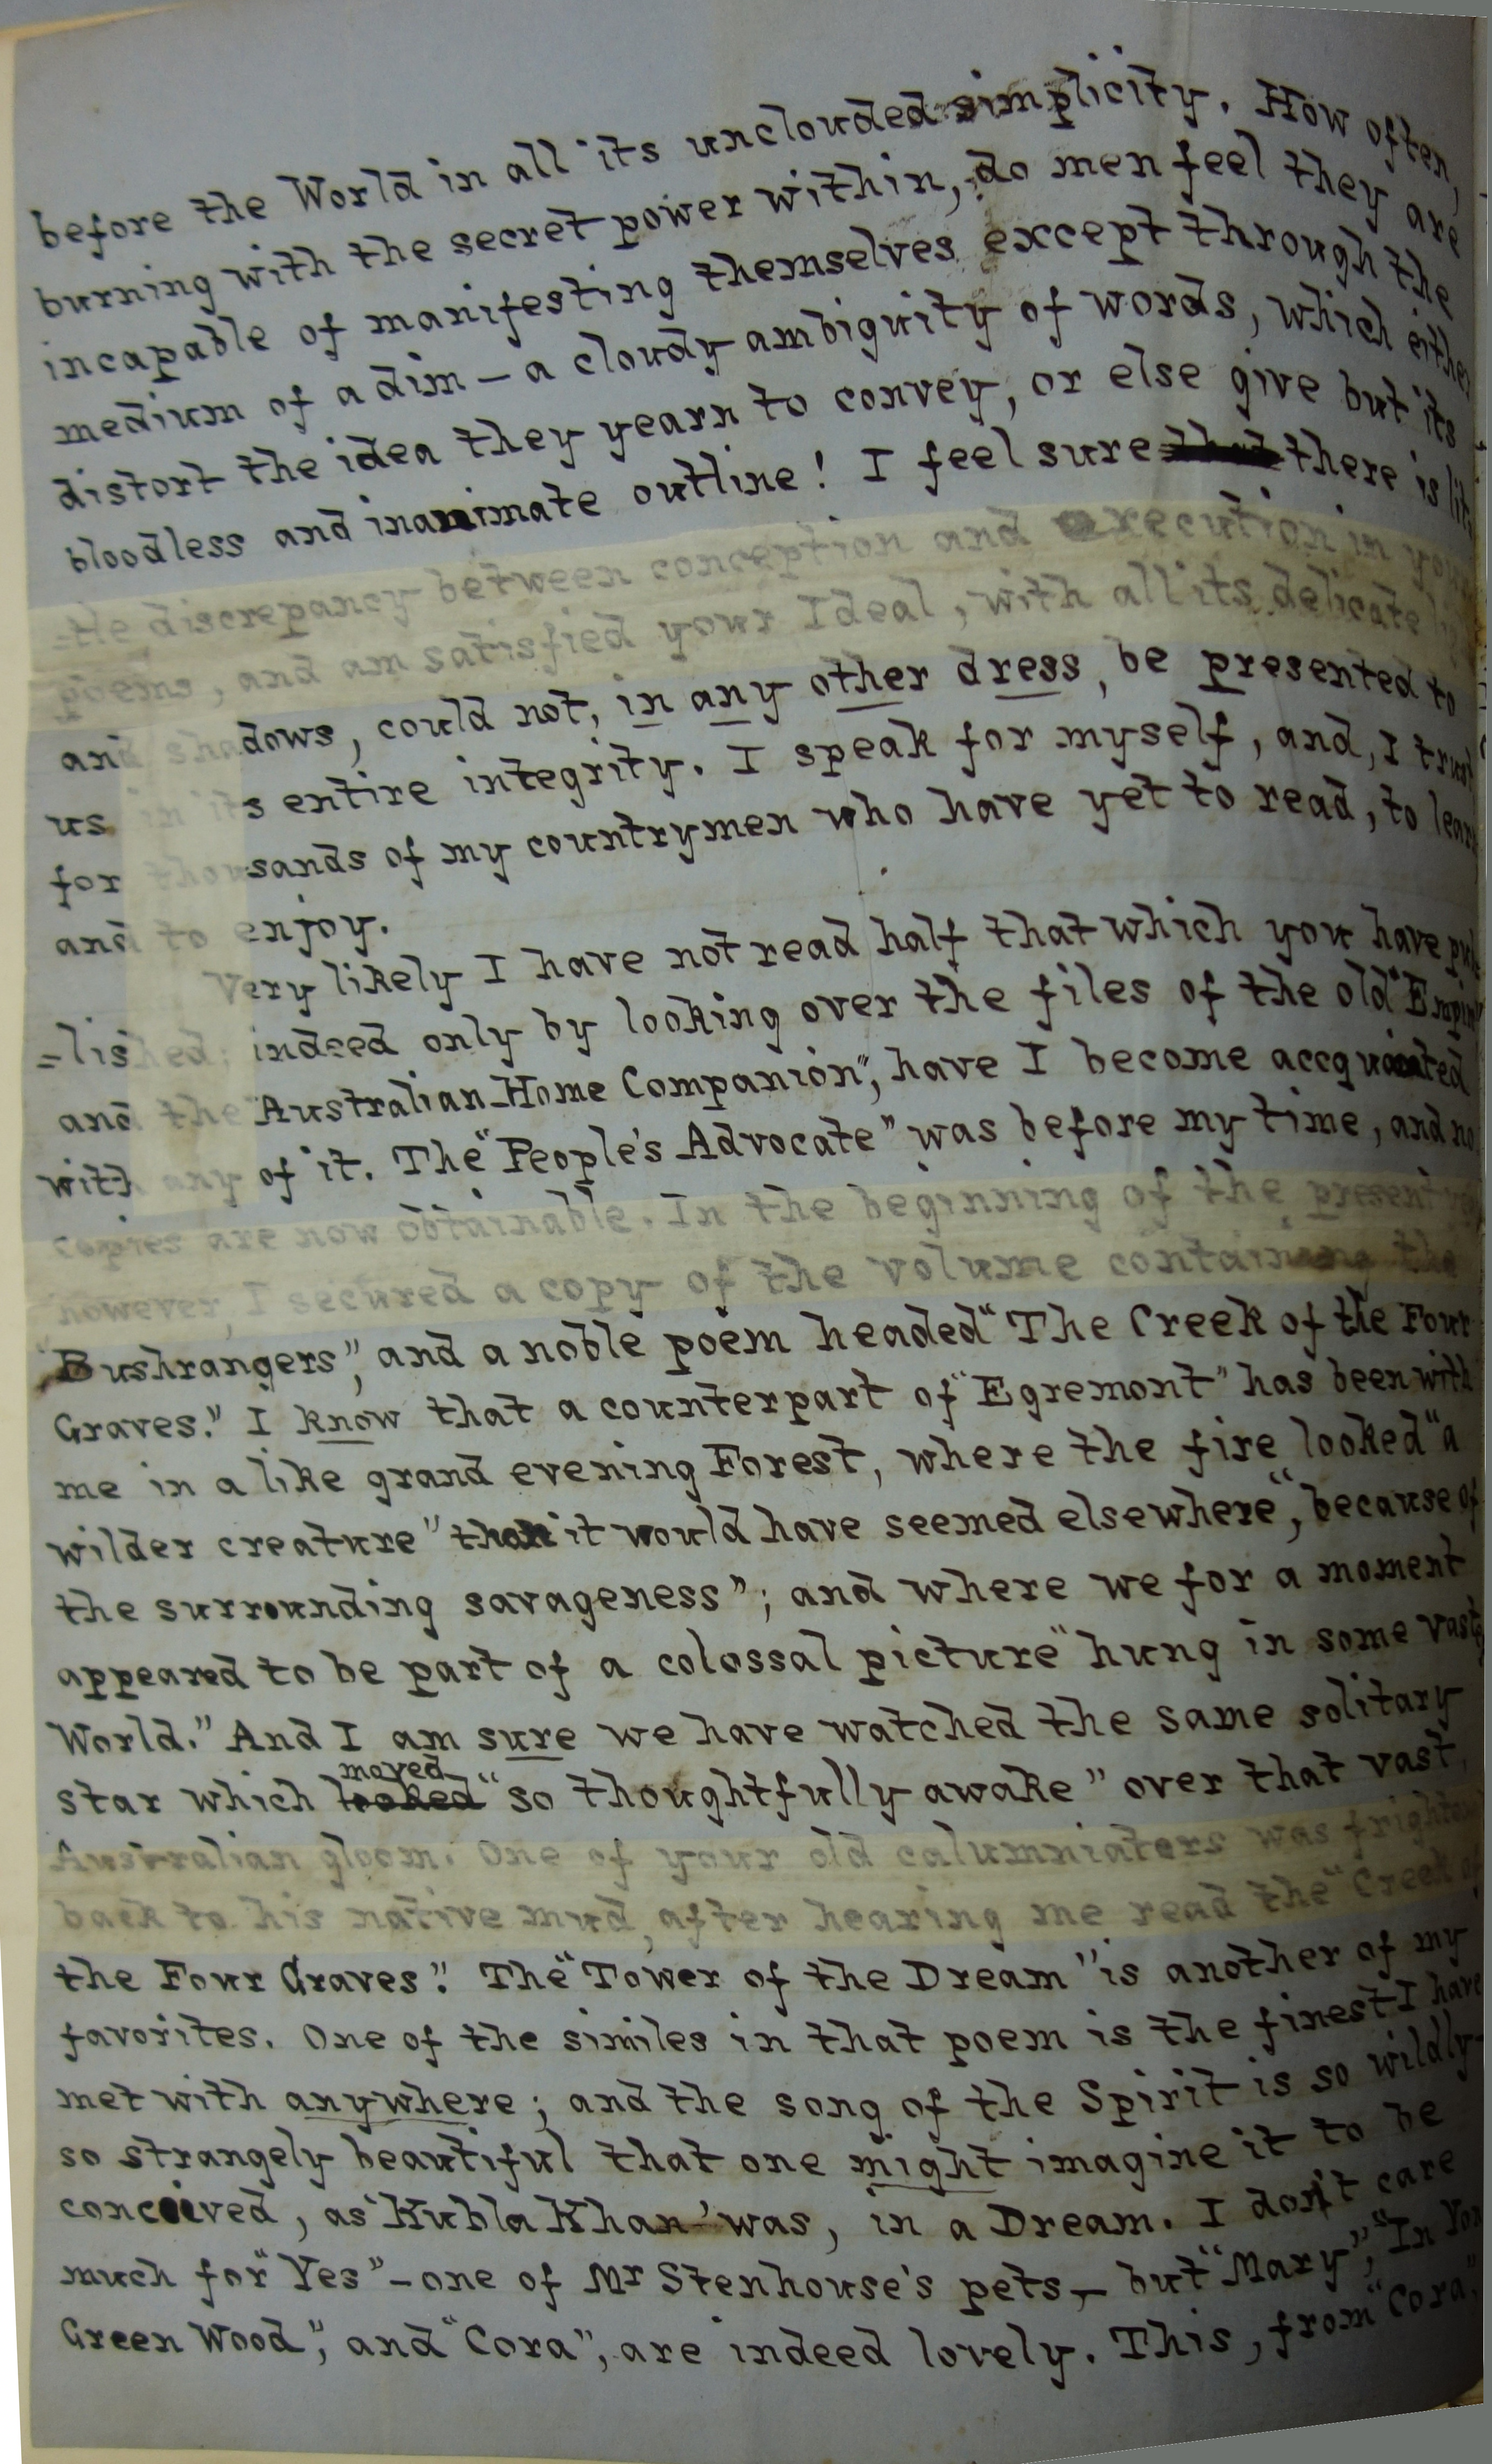 before the World in all its unclouded simplicity. How often,
burning with the secret power within, do men feel they are
incapable of manifesting themselves except through the
medium of a dim — a cloudy ambiguity of words, which either
distort the idea they yearn to convey, or else give but its
bloodless and inanimate outline! I feel sure there is lit
=tle discrepancy between conception and execution in your
poems, and am satisfied your Ideal, with all its delicate
and shadows, could not, in any other dress, be presented to
us in its entire integrity. I speak for myself, and, I trust
for thousands of my countrymen who have yet to read, to learn
and to enjoy.
Very likely I have not read half that which you have pub
=lished; indeed only by looking over the files of the old "Empire"
and the "Australian Home Companion", have I become accquainted
with any of it. The "People's Advocate" was before my time, and no
copies are now obtainable. In the beginning of the present
however, I secured a copy of the volume containing the
"Bushrangers", and a noble poem headed "The Creek of the Four
Graves." I know that a counterpart of "Egremont" has been with
me in a like grand evening Forest, where the fire looked "a
wilder creature" than it would have seemed elsewhere", because of
the surrounding savageness"; and where we for a moment
appeared to be part of a colossal picture "hung in some vast
World." And I am sure we have watched the same solitary
star which looked moved "so thoughtfully awake" over that vast
Australian gloom. One of your old calumniators was frightened
back to his native mud, after hearing me read the "Creek of
the Four Graves". The "Tower of the Dream" is another of my
favorites. One of the similes in that poem is the finest I have
met with anywhere; and the song of the Spirit is so wildly
so strangely beautiful that one might imagine it to be
conceived, as 'Kubla Khan' was, in a Dream. I don't care
much for "Yes" – one of Mr Stenhouse's pets – but "Mary", "In Yon
Green Wood", and "Cora", are indeed lovely. This, from "Cora",